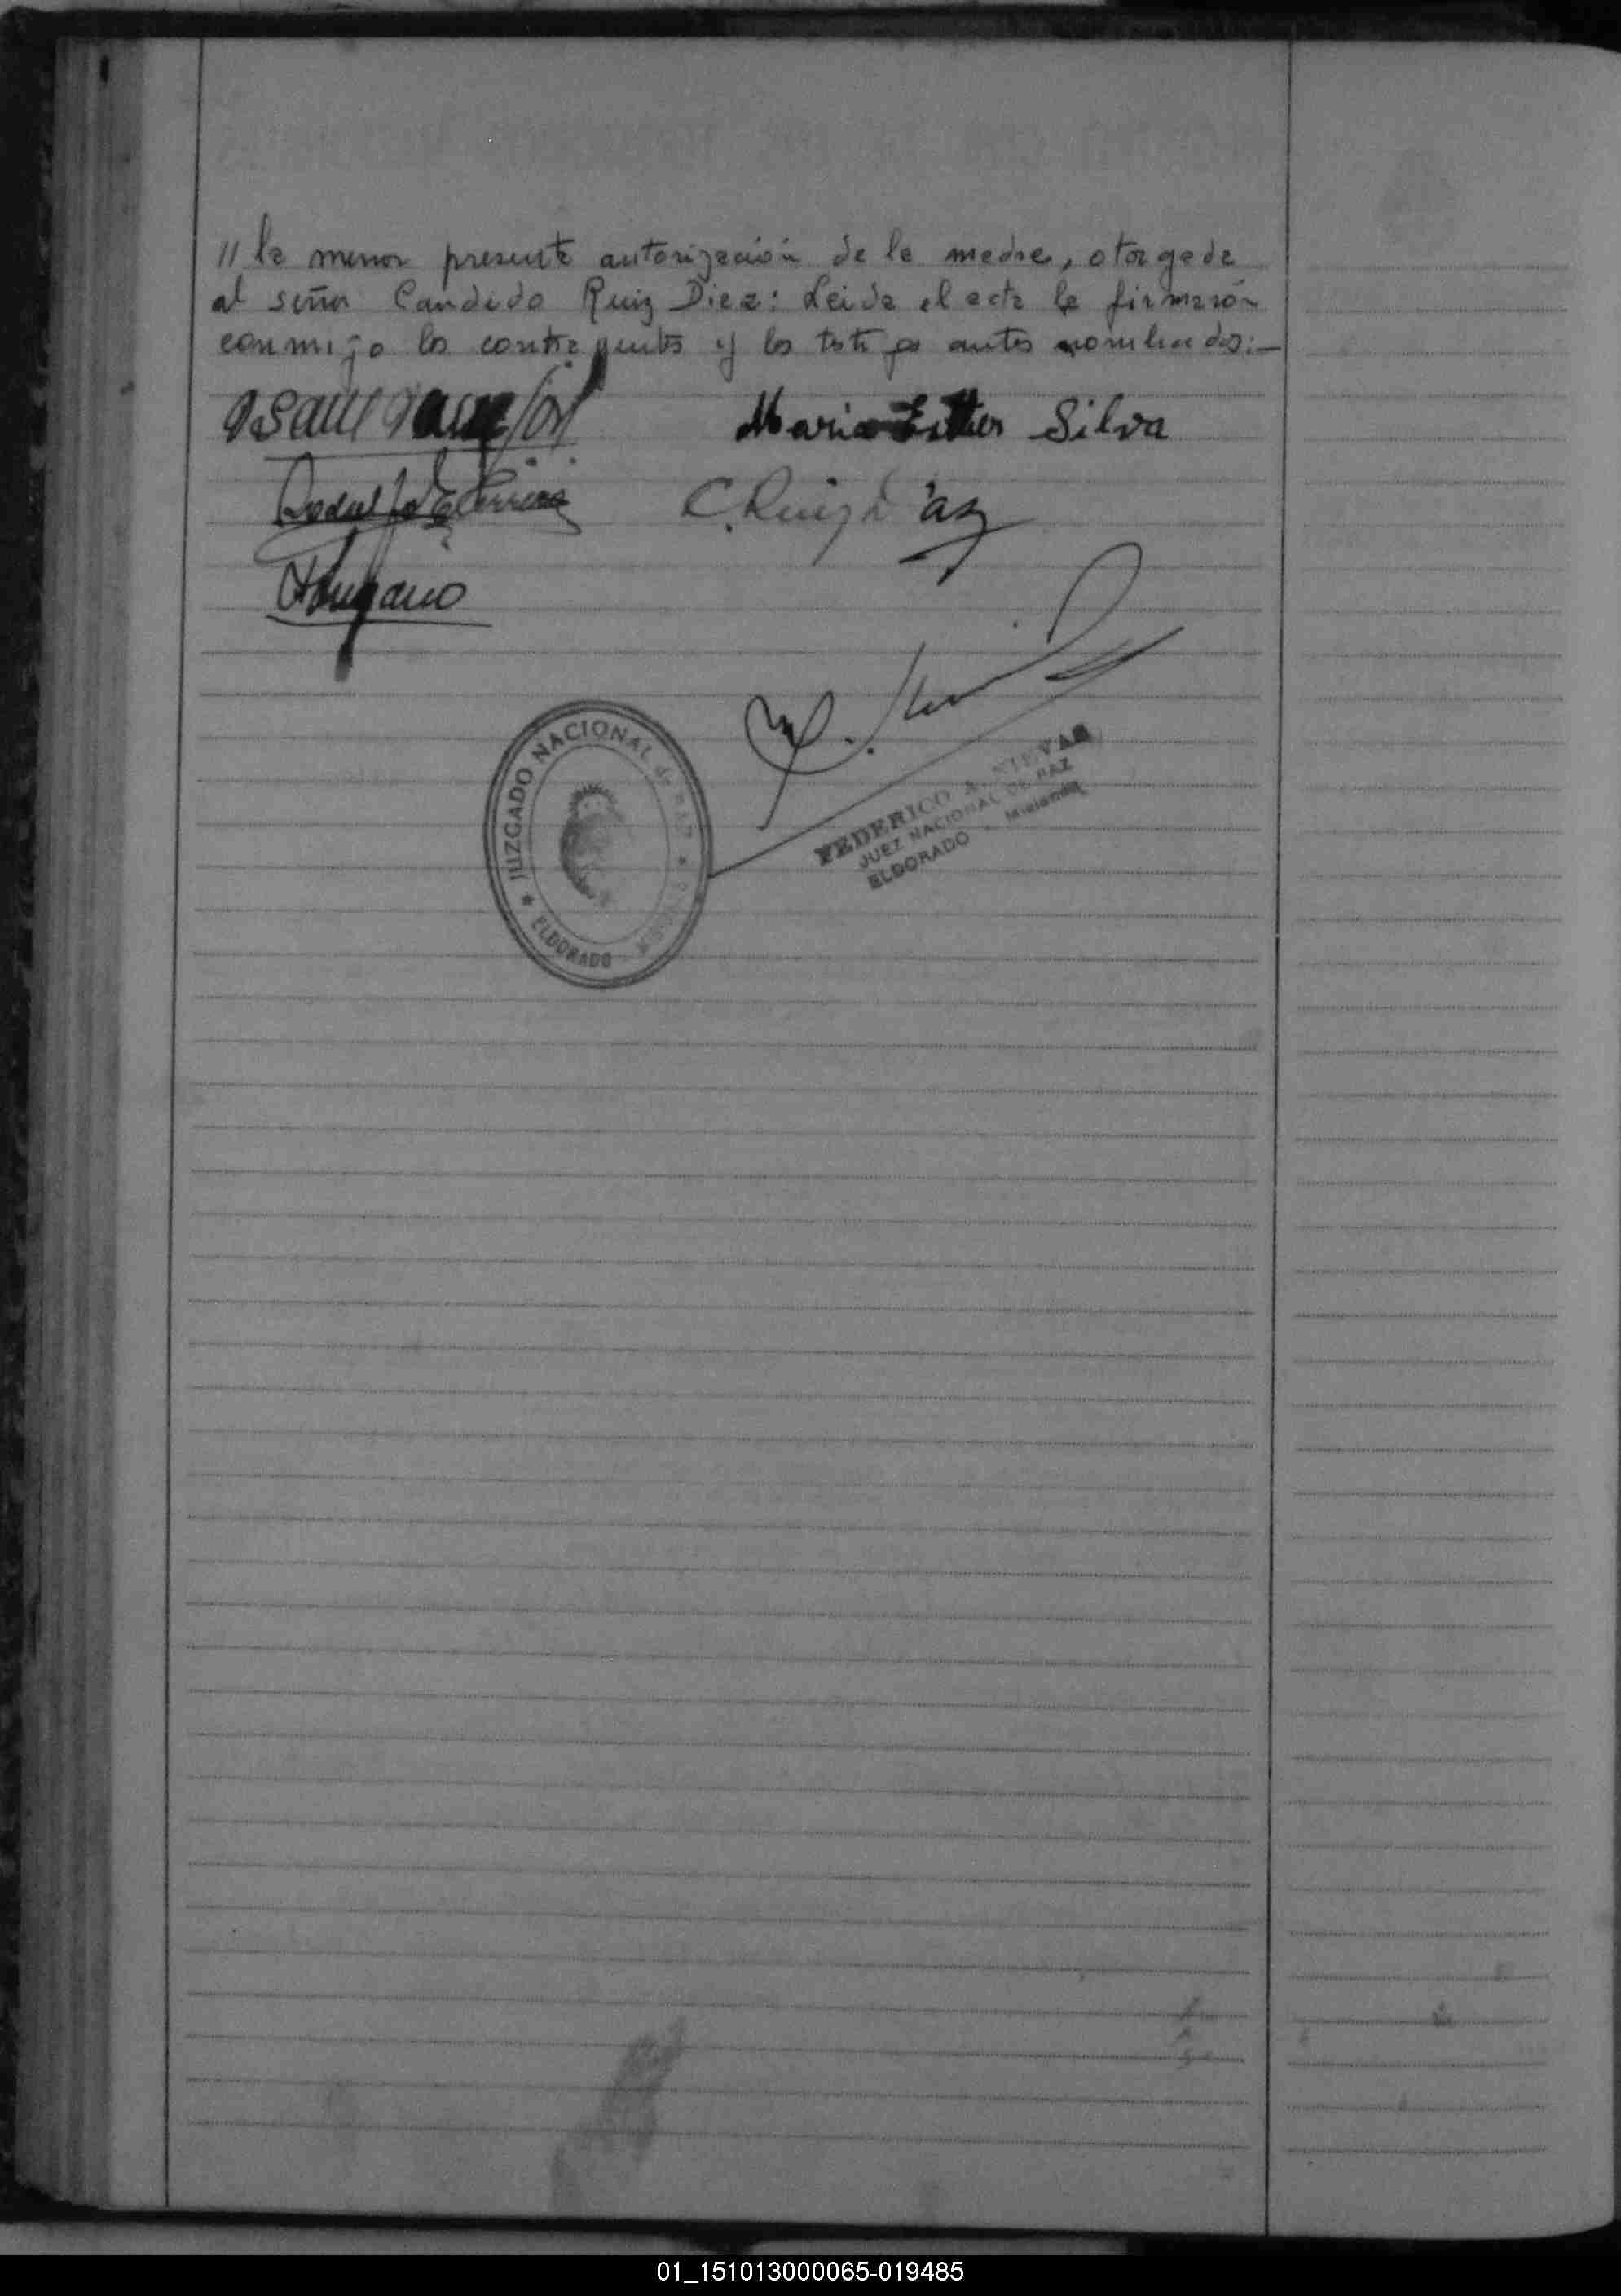 // la menor presente autorización de la madre, otorgada
al señor Candido Ruiz Diaz: Leida el acta la firmarón
conmigo los contrayentes y los testigos antes nombrados:—
Maria Esther Silva
C. Ruiz Diaz
JUZGADO NACIONAL de PAZ
ELDORADO
FEDERICO A.
JUEZ NACIONAL DE PAZ
ELDORADO - Misiones
01_151013000065-019485